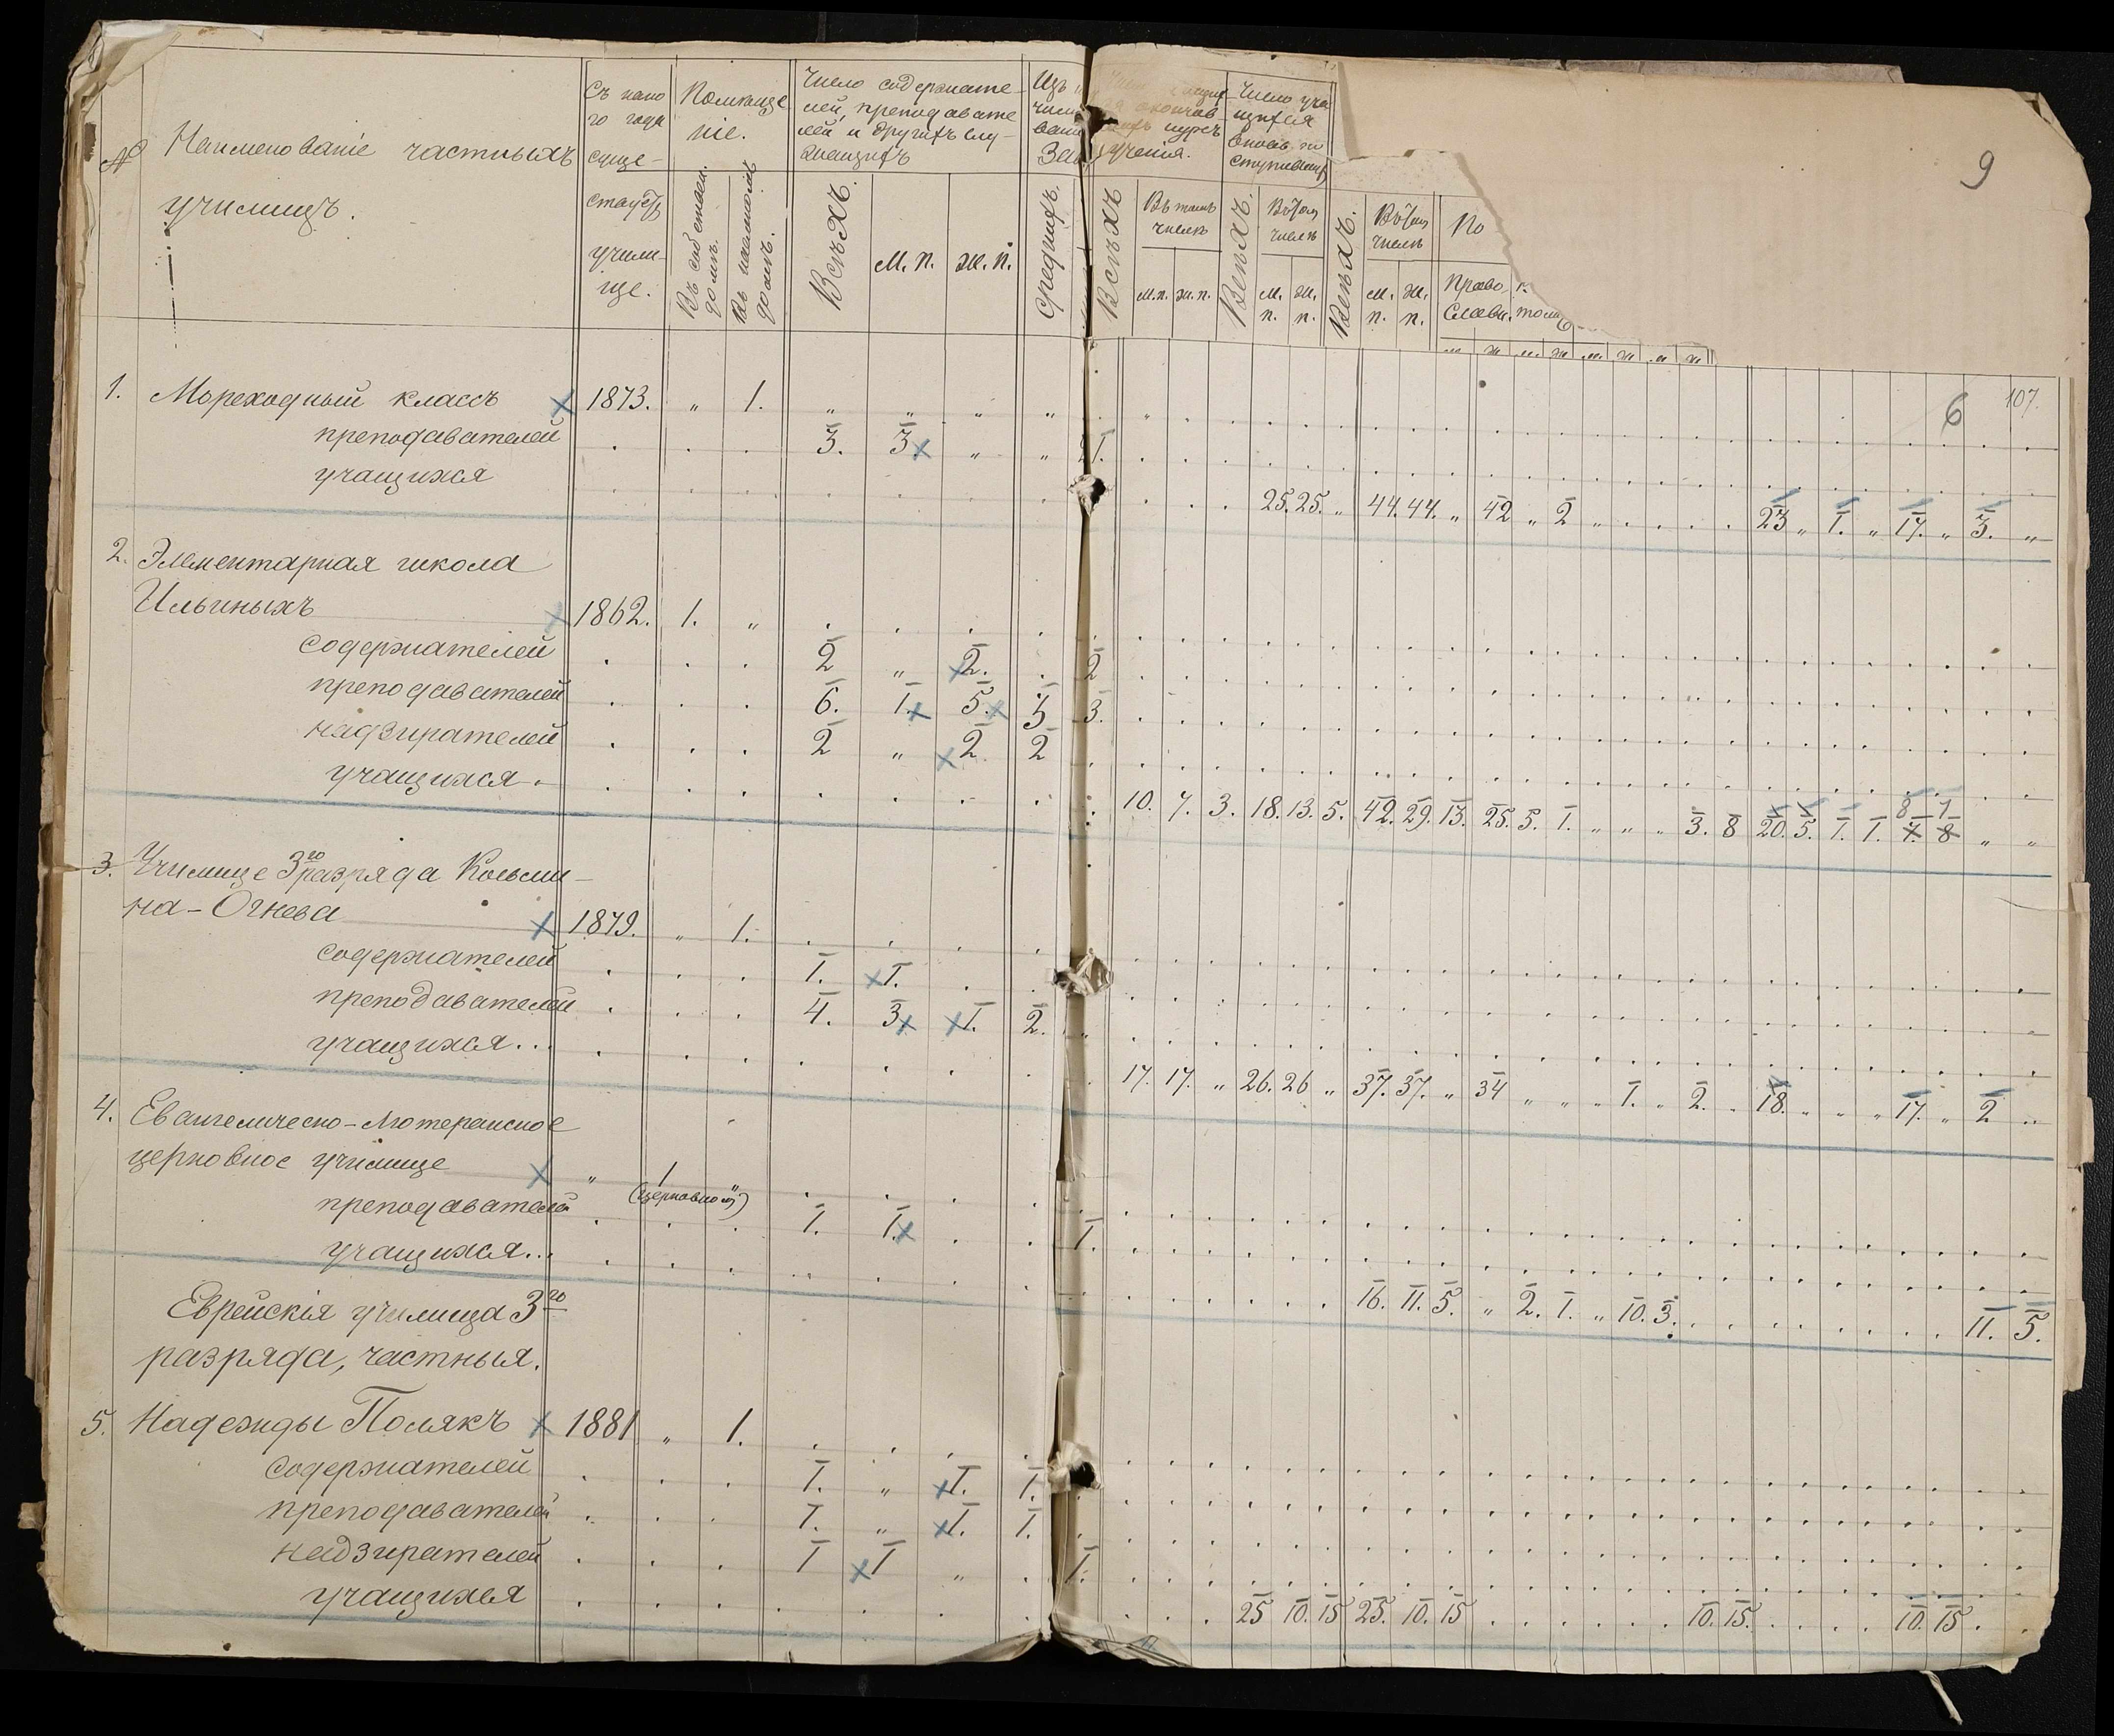 №
Наименованіе частныхъ
училищъ.
Съ како
го года
суще-
ствуетъ
учили-
ще.
Помѣще
ніе.
Въ собствен.
домѣ.
Въ наемномъ
домѣ.
Число содержате-
лей, преподавате
лей и другихъ слу-
жащихъ
Всѣхъ.
м. п.
ж. п.
Изъ
числ
Зав
Среднихъ.
окончив
курсъ
ученія.
Всѣхъ
Въ томъ
числѣ
м.п. ж.п.
Число уча
щихся
вновь по
ступивших
Всѣхъ.
Въ том
числѣ
м. п. ж. п.
Всѣхъ.
Въ том
числѣ
м. п. ж. п.
По
Право
славн.
к.
м ж м ж м ж м ж
9
6 107.
1. Мореходный классъ 1873. " 1. " " " "
преподавателей 3. 3 " " 1.
учащихся 25. 25. " 44. 44. " 42 " 2 " 23 " 1. " 17. " 3. "
2. Элементарная школа
Ильиныхъ 1862. 1. "
содержателей 2 " 2. 2
преподавателей 6. 1. 5. 3 3.
надзирателей 2 " 2 2
учащихся. 10. 7. 3. 18. 13. 5. 42. 29. 13. 25. 5. 1. " " " 3. 8 20. 5. 1. 1. 7. 8 " "
8 7
3. Училище 3го разряда Косьми-
на-Огнева 1879. " 1.
содержателей 1. 1.
преподавателей 4. 3 1. 2. "
учащихся... 17. 17. " 26. 26 " 37. 37. " 34 " " " 1. " 2. " 18. " " " 17. " 2 "
4. Евангелическо-Лютеранское
церковное училище " 1 "
(церковном)
преподавателей 1. 1. 1.
учащихся... 16. 11. 5. " 2. 1. " 10. 3. 11. 5.
Еврейскія училища 3го
разряда, частныя.
5. Надежды Полякъ 1881 " 1.
содержателей 1. " 1. 1.
преподавателей 1. " 1. 1.
надзирателей 1 1 " 1.
учащихся 25 10. 15 25. 10. 15 10. 15. 10. 15